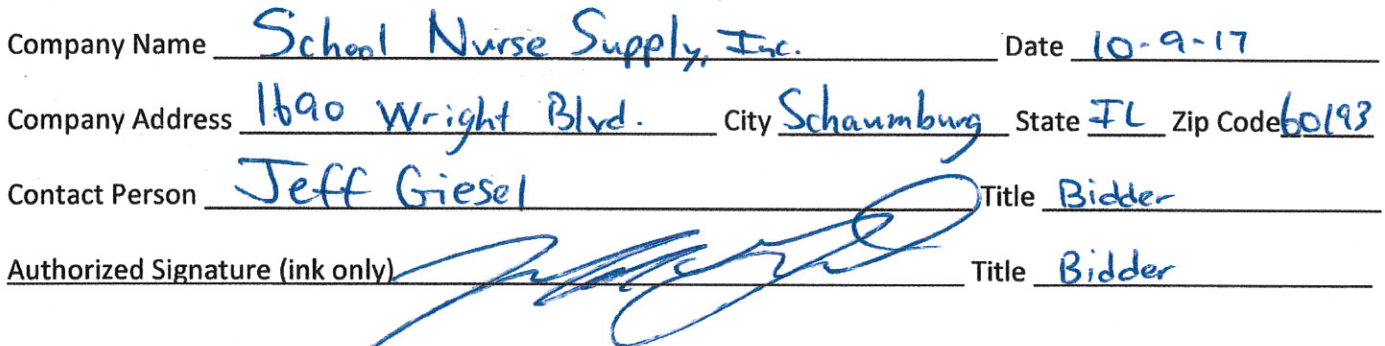 Company Name School Nurse Supply, Inc. Date 10-9-17
Company Address 1690 Wright Blvd. City Schaumburg State IL Zip Code 60193
Contact Person Jeff Giesel Title Bidder
Authorized Signature (ink only) Title Bidder